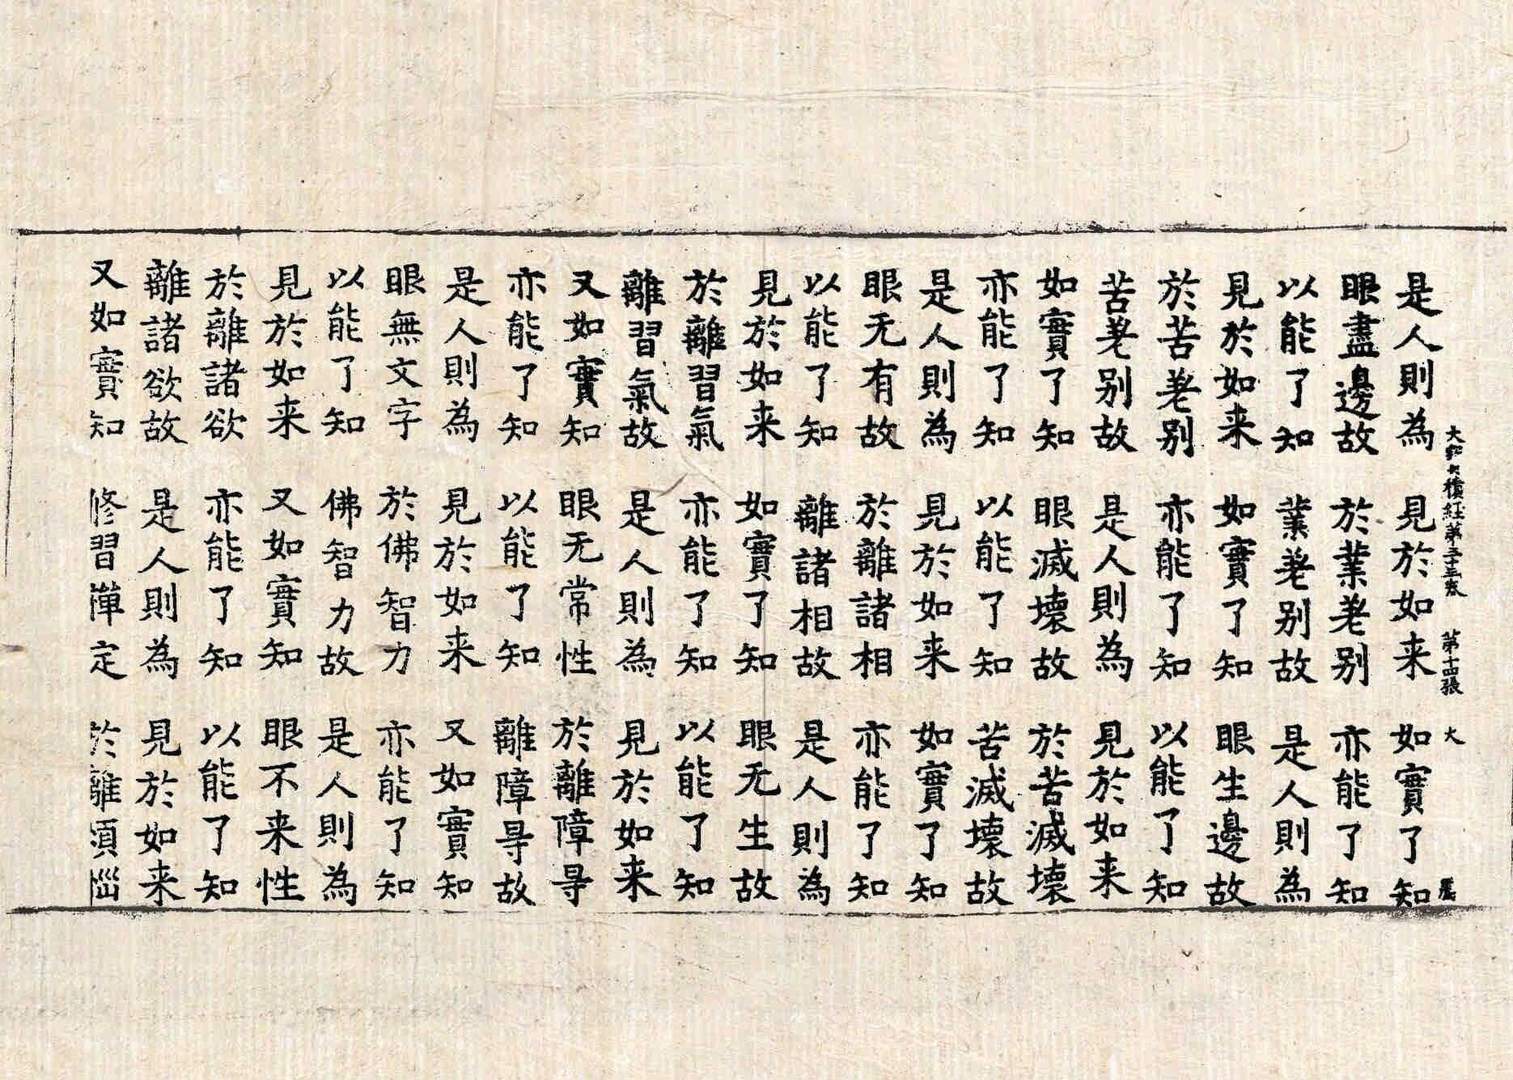 第十四張 大
是人則為 見於如来 如實了知
眼盡邊故 於業差别 亦能了知
以能了知 業差别故 是人則為
見於如来 如實了知 眼生邊故
於苦差别 亦能了知 以能了知
苦差别故 是人則為 見於如来
如實了知 眼滅壞故 於苦滅壞
亦能了知 以能了知 苦滅壞故
是人則為 見於如来 如實了知
眼无有故 於離諸相 亦能了知
以能了知 離諸相故 是人則為
見於如来 如實了知 眼无生故
於離習氣 亦能了知 以能了知
離習氣故 是人則為 見於如来
又如實知 眼无常性 於離障㝵
亦能了知 以能了知 離障㝵故
是人則為 見於如来 又如實知
眼無文字 於佛智力 亦能了知
以能了知 佛智力故 是人則為
見於如来 又如實知 眼不来性
於離諸欲 亦能了知 以能了知
離諸欲故 是人則為 見於如来
又如實知 修習禪定 於離煩惱